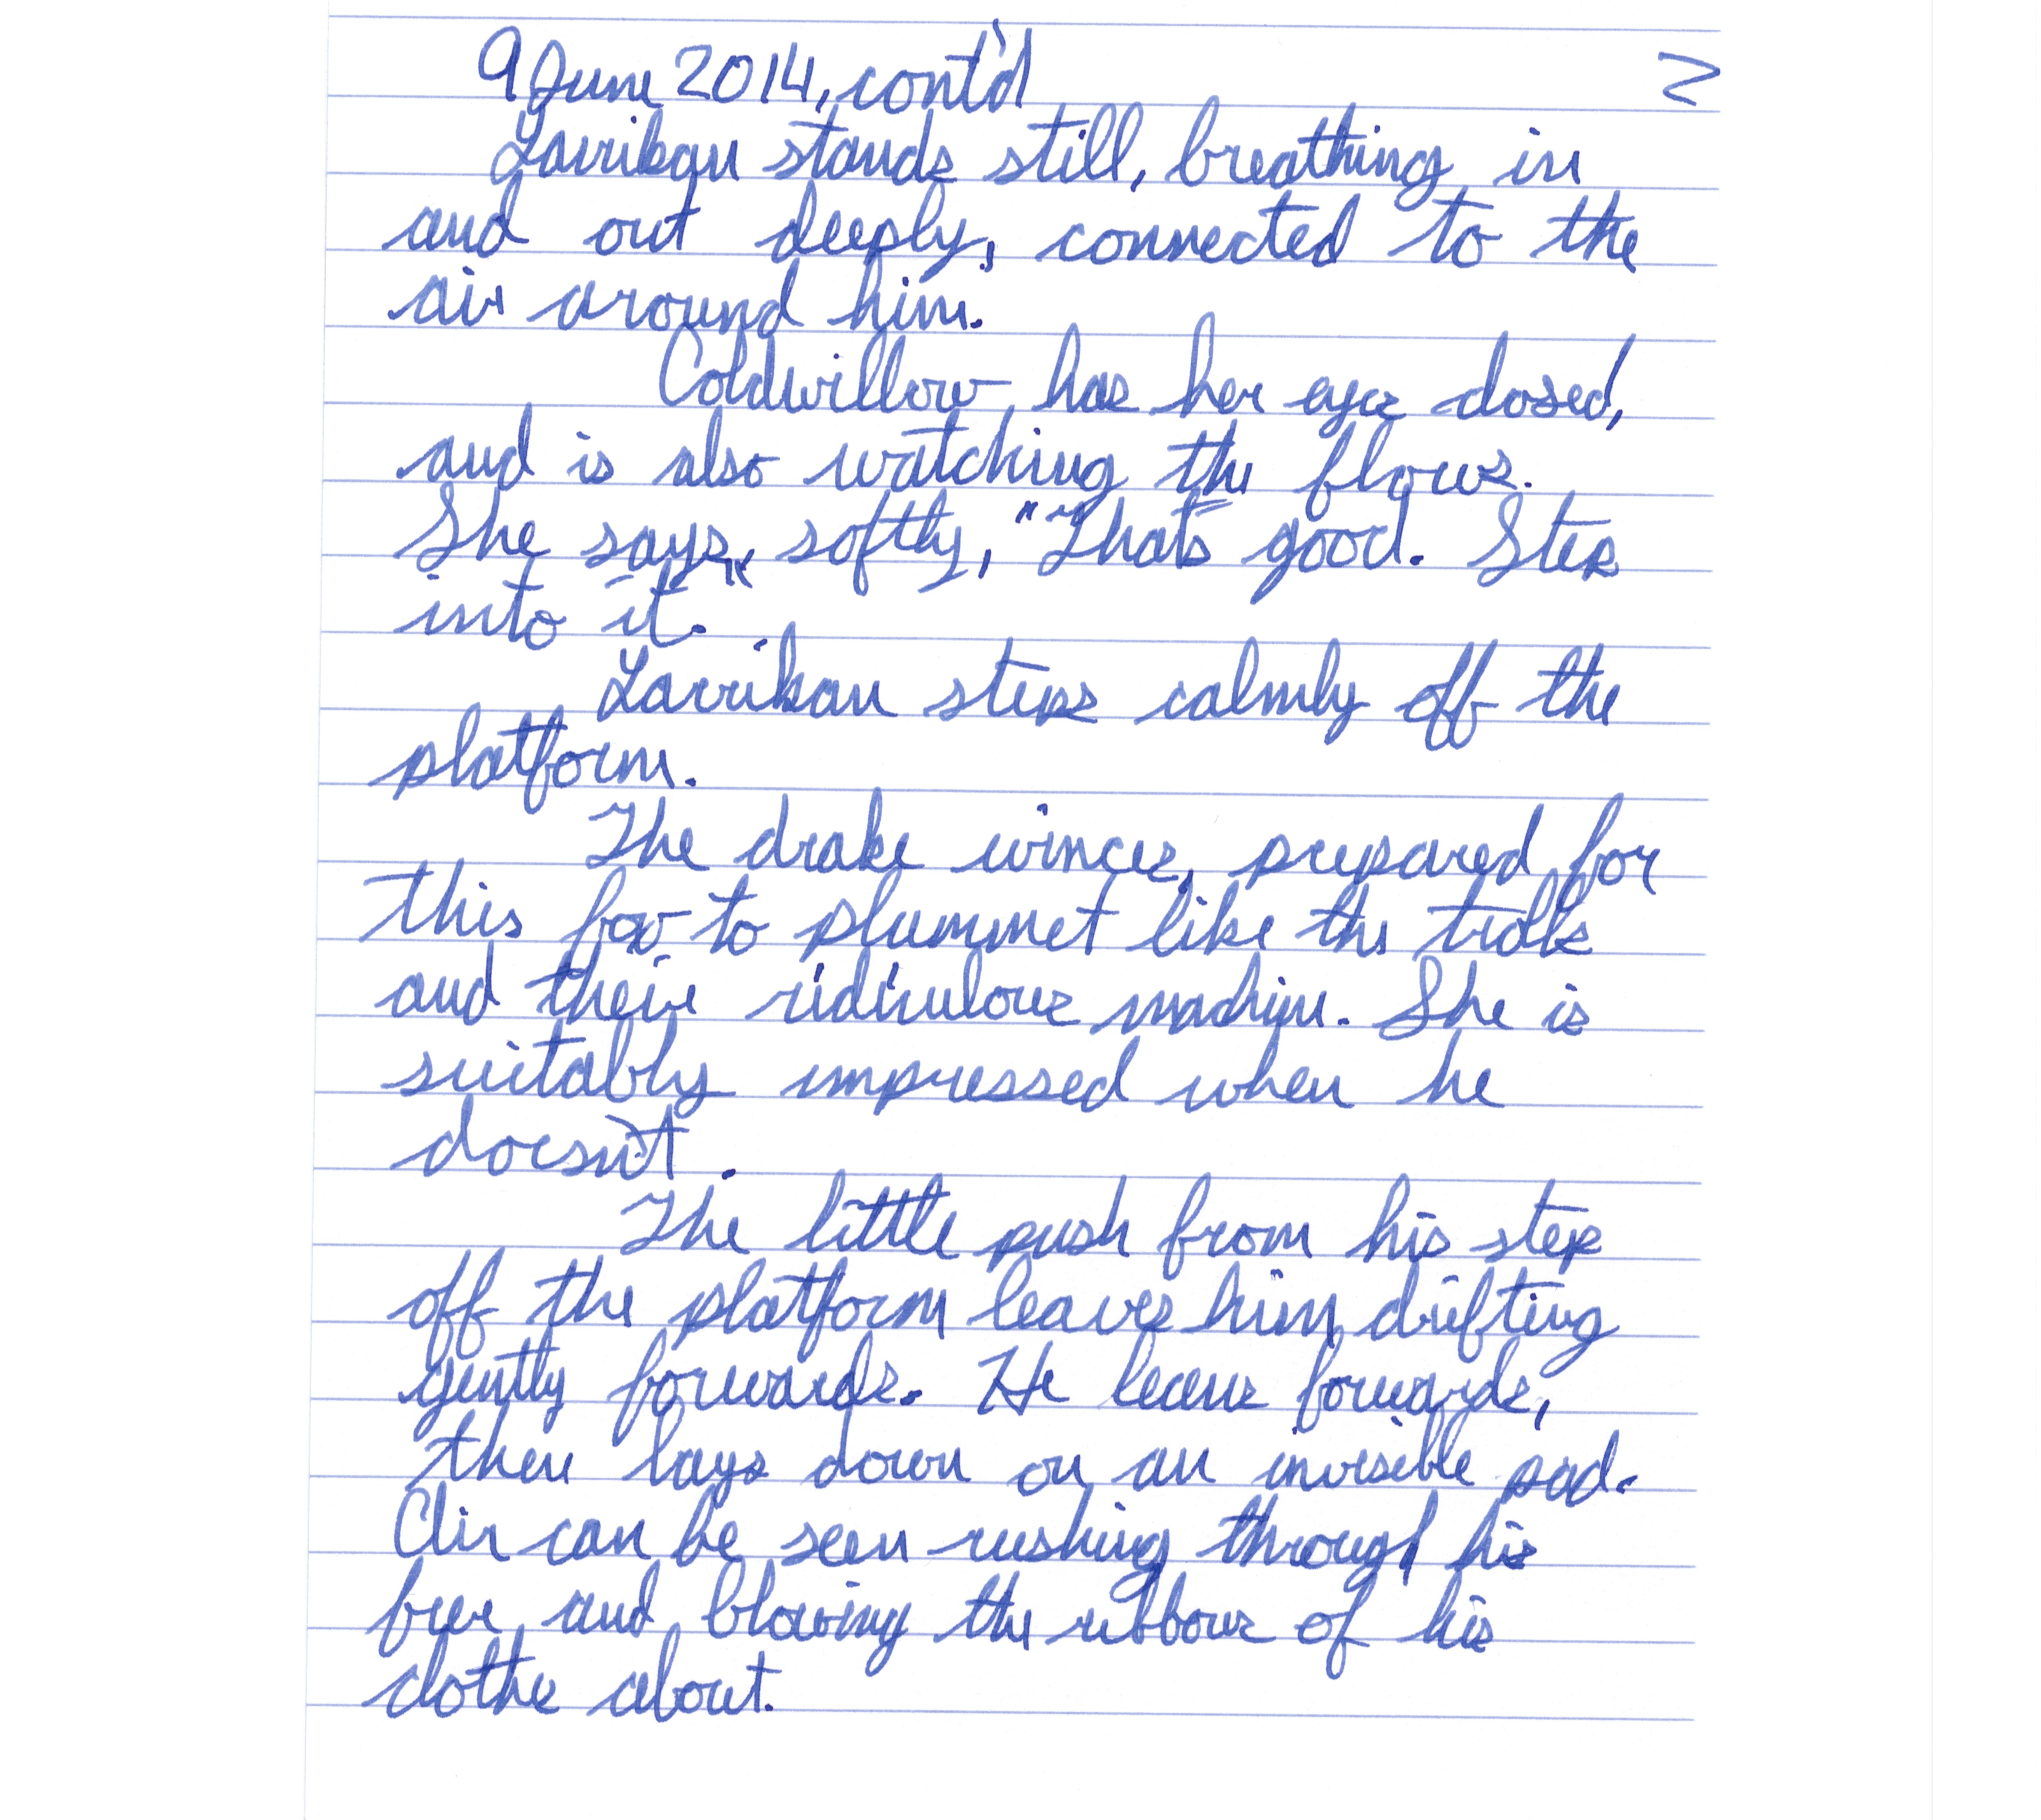 9 June 2014, cont'd 2
Larrikan stands still, breathing in
and out deeply, connected to the
air around him.
Coldwillow has her eyes closed,
and is also watching the flows.
She says, softly, "That's good. Step
into it."
Larrikan steps calmly off the
platform.
The drake winces, prepared for
this fox to plummet like the trolls
and their ridiculous machine. She is
suitably impressed when he
doesn't.
The little push from his step
off the platform leaves him drifting
gently forwards. He leans forwards,
then lays down on an invisible pad.
Air can be seen rushing through his
fur and blowing the ribbons of his
clothes about.